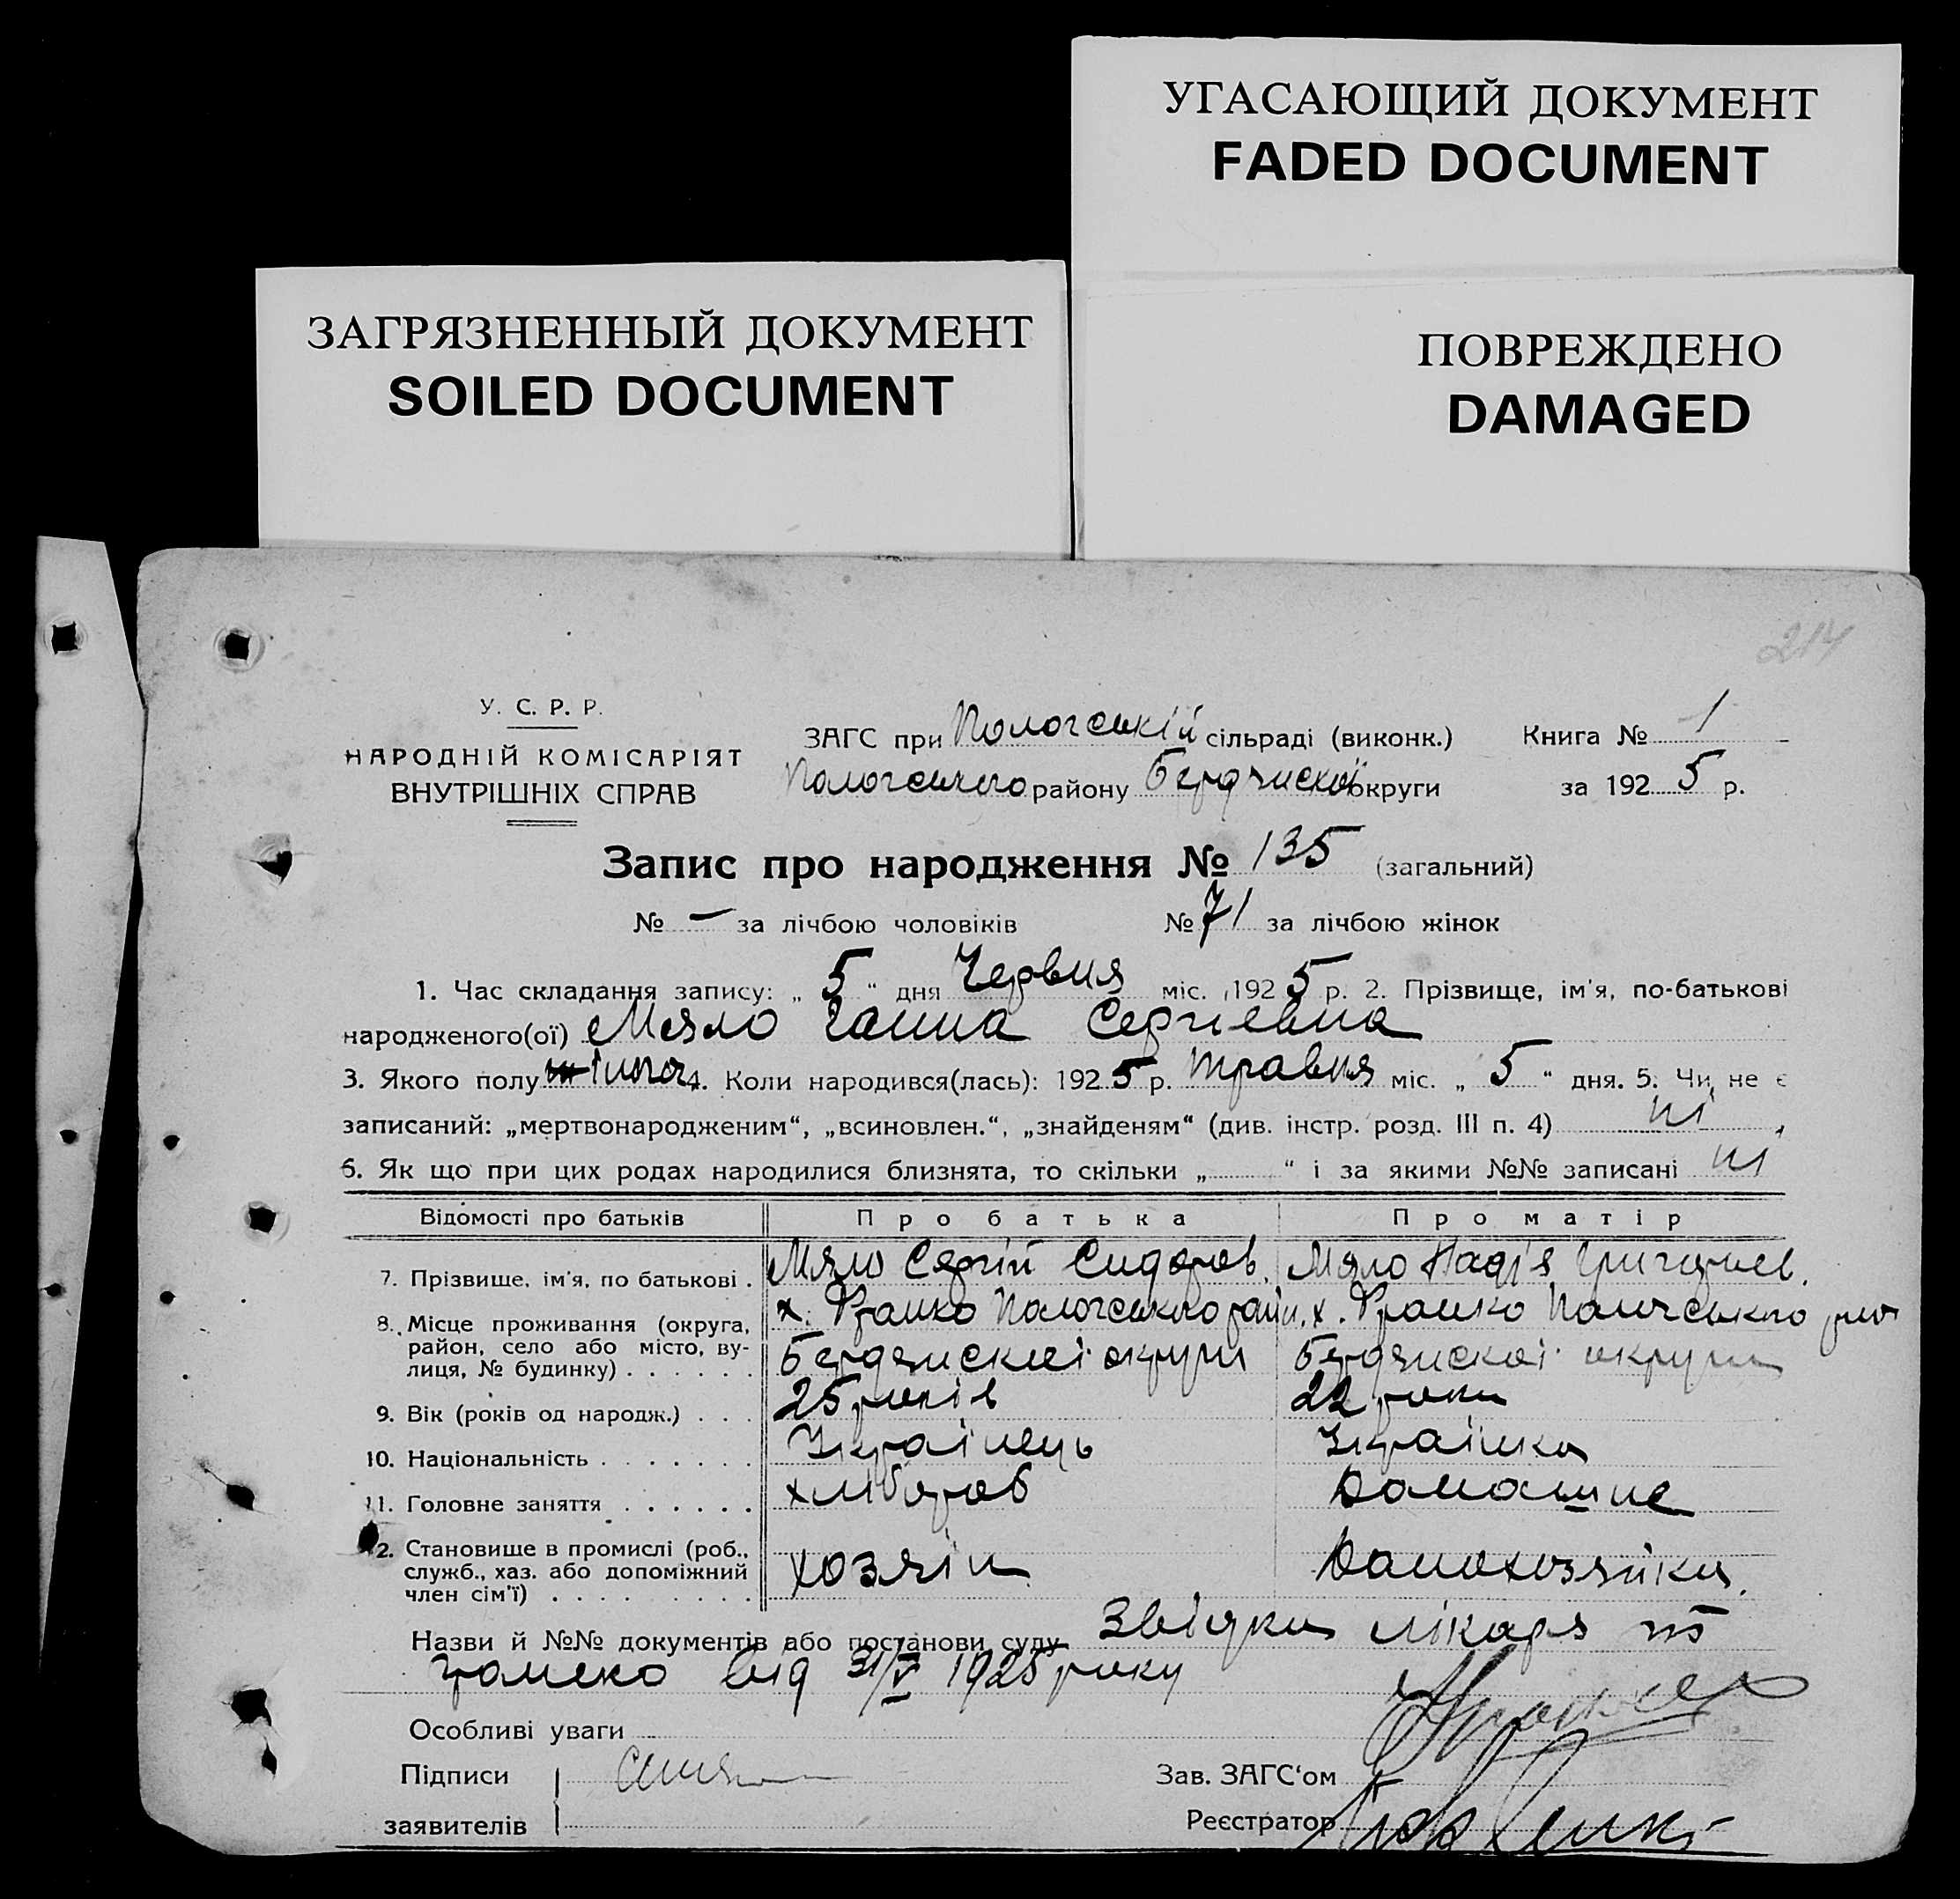 УГАСАЮЩИЙ ДОКУМЕНТ
FADED DOCUMENT
ЗАГРЯЗНЕННЫЙ ДОКУМЕНТ
SOILED DOCUMENT
ПОВРЕЖДЕНО
DAMAGED
214
У. С. Р. Р.
НАРОДНІЙ КОМІСАРІЯТ
ВНУТРІШНІХ СПРАВ
ЗАГС при Пологській сільраді (виконк.) Книга № 1
Пологського району Бердянскої округи за 1925 р.
Запис про народження № 135 (загальний)
№ — за лічбою чоловіків № 71 за лічбою жінок
1. Час складання запису: „ 5 “ дня Червня міс. 1925 р. 2. Прізвище, ім'я, по-батькові
народженого(ої) Мяло Ганна Сергіевна
3. Якого полу жіноч. 4. Коли народився(лась): 1925 р. травня міс. „ 5 “ дня. 5. Чи не є
записаний: „мертвонародженим“, „всиновлен.“, „знайденям“ (див. інстр. розд. III п. 4) ні
6. Як що при цих родах народилися близнята, то скільки „ “ і за якими №№ записані ні
Відомості про батьків Про батька Про матір
7. Прізвище, ім'я, по батькові . Мяло Сергій Сидоров. Мяло Надія Григориев.
8. Місце проживання (округа, район, село або місто, вулиця, № будинку) . . . . . . х. Франко Пологського райн. Бердянскої округи х. Франко Пологського рай Бердянскої округи
9. Вік (років од народж.) . . . 25 років 22 роки
10. Національність . . . . . . . Українець Українка
11. Головне заняття . . . . . . хлібороб Домашнє
12. Становище в промислі (роб., служб., хаз. або допоміжний член сім'ї) . . . . . . . . . хозяїн Домохозяйка.
Назви й №№ документів або постанови суду Звідка лікаря
від 31/V 1925 року
Особливі уваги
Підписи
заявителів
Зав. ЗАГС'ом
Реєстратор